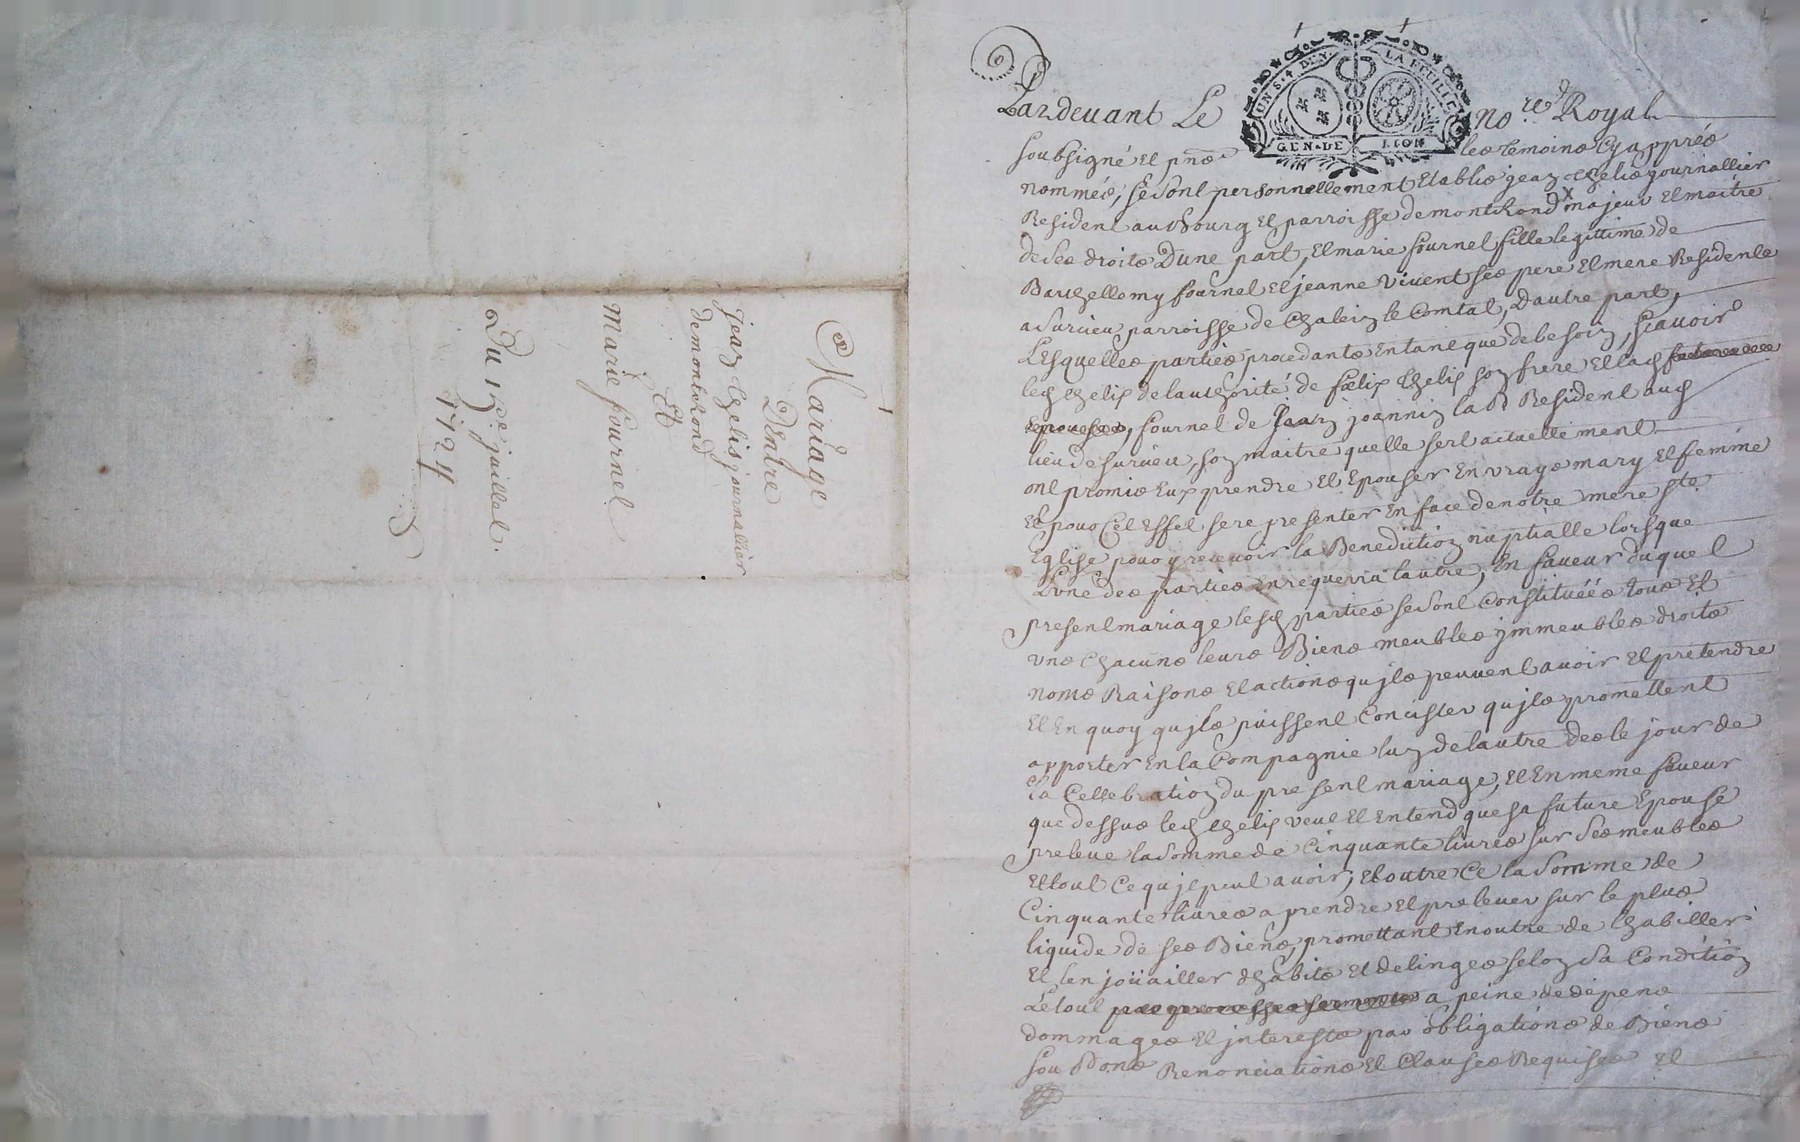 Mariage
Dentre
Jean Thelis journallier
de montrhond
Et
Marie fournel
Du 17e juillet.
1724
UN S. 4 DEN. LA FEUILLE
GEN. DE LION
Pardevant Le Nore Royal
soubsigné et pnts les temoins cy apprés
nommés, se sont personnellement Etablis jean thelis journallier
Resident au bourg et parroisse de montrhond majeur et maitre
de ses droits Dune part, et marie fournel fille legittime de
Barthellemy fournel et jeanne vivent ses pere et mere Residente
a survieu parroisse de Chalein le Comtal, Dautre part,
Lesquelles parties procedants en tant que de besoin, scavoir
led thelis de lauthorité de fœlix thelis son frere et lad
fournel de Jean joannin lab Resident aud
lieu de survieu, son maitre quelle sert actuellement
ont promis Eux prendre et Epouser En vrays mary et femme
Et pour Cet Effet se representer En face de notre mere ste
Eglise pour y recevoir la Benediction nuptialle lorsque
Lune des parties en requerra lautre, En faveur duquel
present mariage lesd parties se sont Constituéés tous et
uns Chacuns leurs Biens meubles ymmeubles droits
noms Raisons et actions quils peuvent avoir et pretendre
et En quoy quils puissent Concister quils promettent
apporter En la Compagnie lun de lautre des le jour de
la Cellebration du present mariage, et En meme faveur
que dessus led thelis veut et entend que sa future Epouse
preleve la somme de Cinquante livres sur ses meubles
et tout Ce quil peut avoir, et outre Ce la somme de
Cinquante livres a prendre et prelever sur le plus
liquide de ses Biens, promettant En outre de lhabiller
et lenjoüailler dhabits et de linges selon sa Condition
Le tout a peine de dépens
dommages et jnterests par obligations de Biens
Renonciations et Clauses Requises et